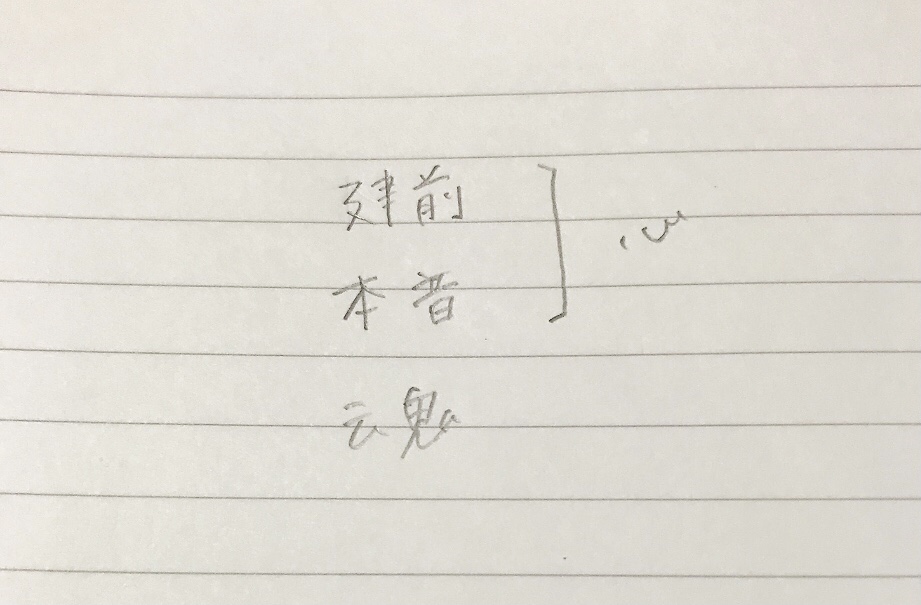 建前
本音
心
魂